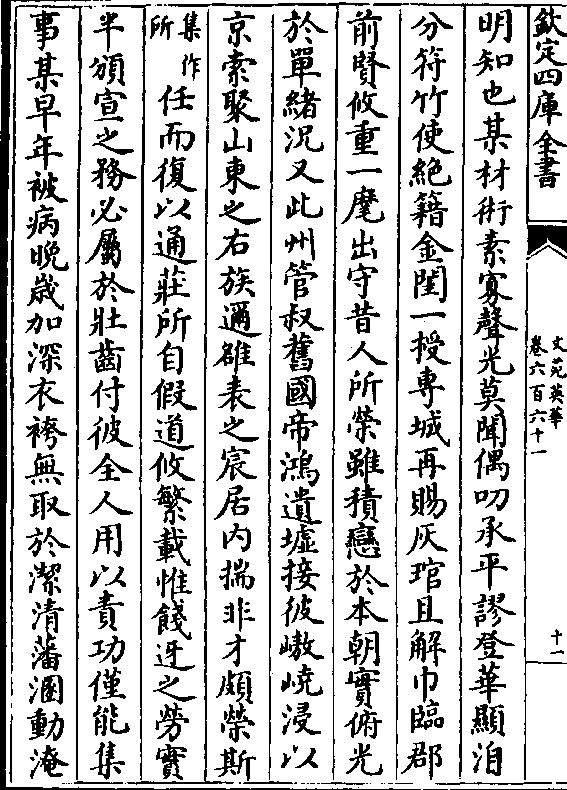 欽定四庫全書
文苑英華
卷六百六十一
十一
明知也某材術素寡聲光莫聞偶叨承平謬登華顯洎
分符竹使絶籍金閨一授専城再賜灰琯且解巾臨郡
前賢攸重一麾出守昔人所榮雖積戀於本朝實俯光
於單緒况又此州管叔舊國帝鴻遺墟接彼嶅嶢浸以
京索聚山東之右族邇雒表之宸居内揣非才頗榮斯
集作
所
任而復以通莊所自假道攸繁載惟餞迓之勞實
半頒宣之務必屬於壯齒付彼全人用以責功僅能集
事某早年被病晩嵗加深衣袴無取於潔清藩溷動淹